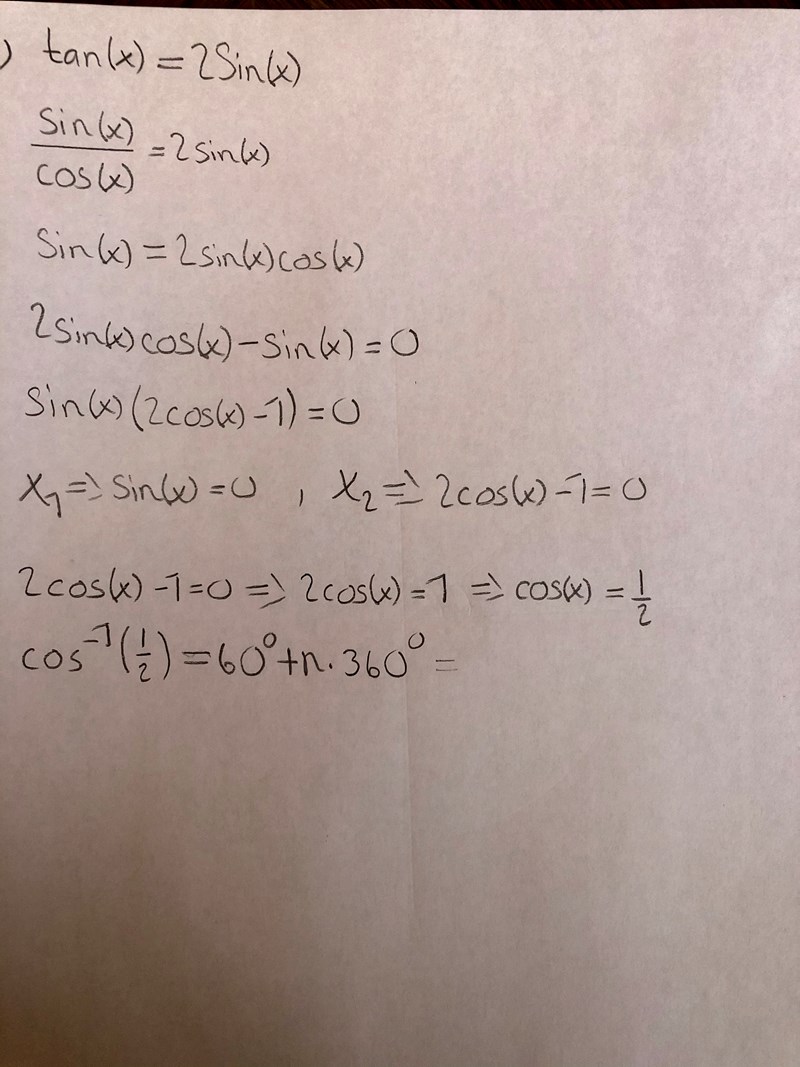 ) tan(x) = 2Sin(x)
Sin(x)/cos(x) = 2sin(x)
Sin(x) = 2sin(x)cos(x)
2sin(x)cos(x) - sin(x) = 0
Sin(x)(2cos(x) - 1) = 0
X₁ => Sin(x) = 0 , X₂ => 2cos(x) - 1 = 0
2cos(x) - 1 = 0 => 2cos(x) = 1 => cos(x) = 1/2
cos⁻¹(1/2) = 60° + n · 360° =